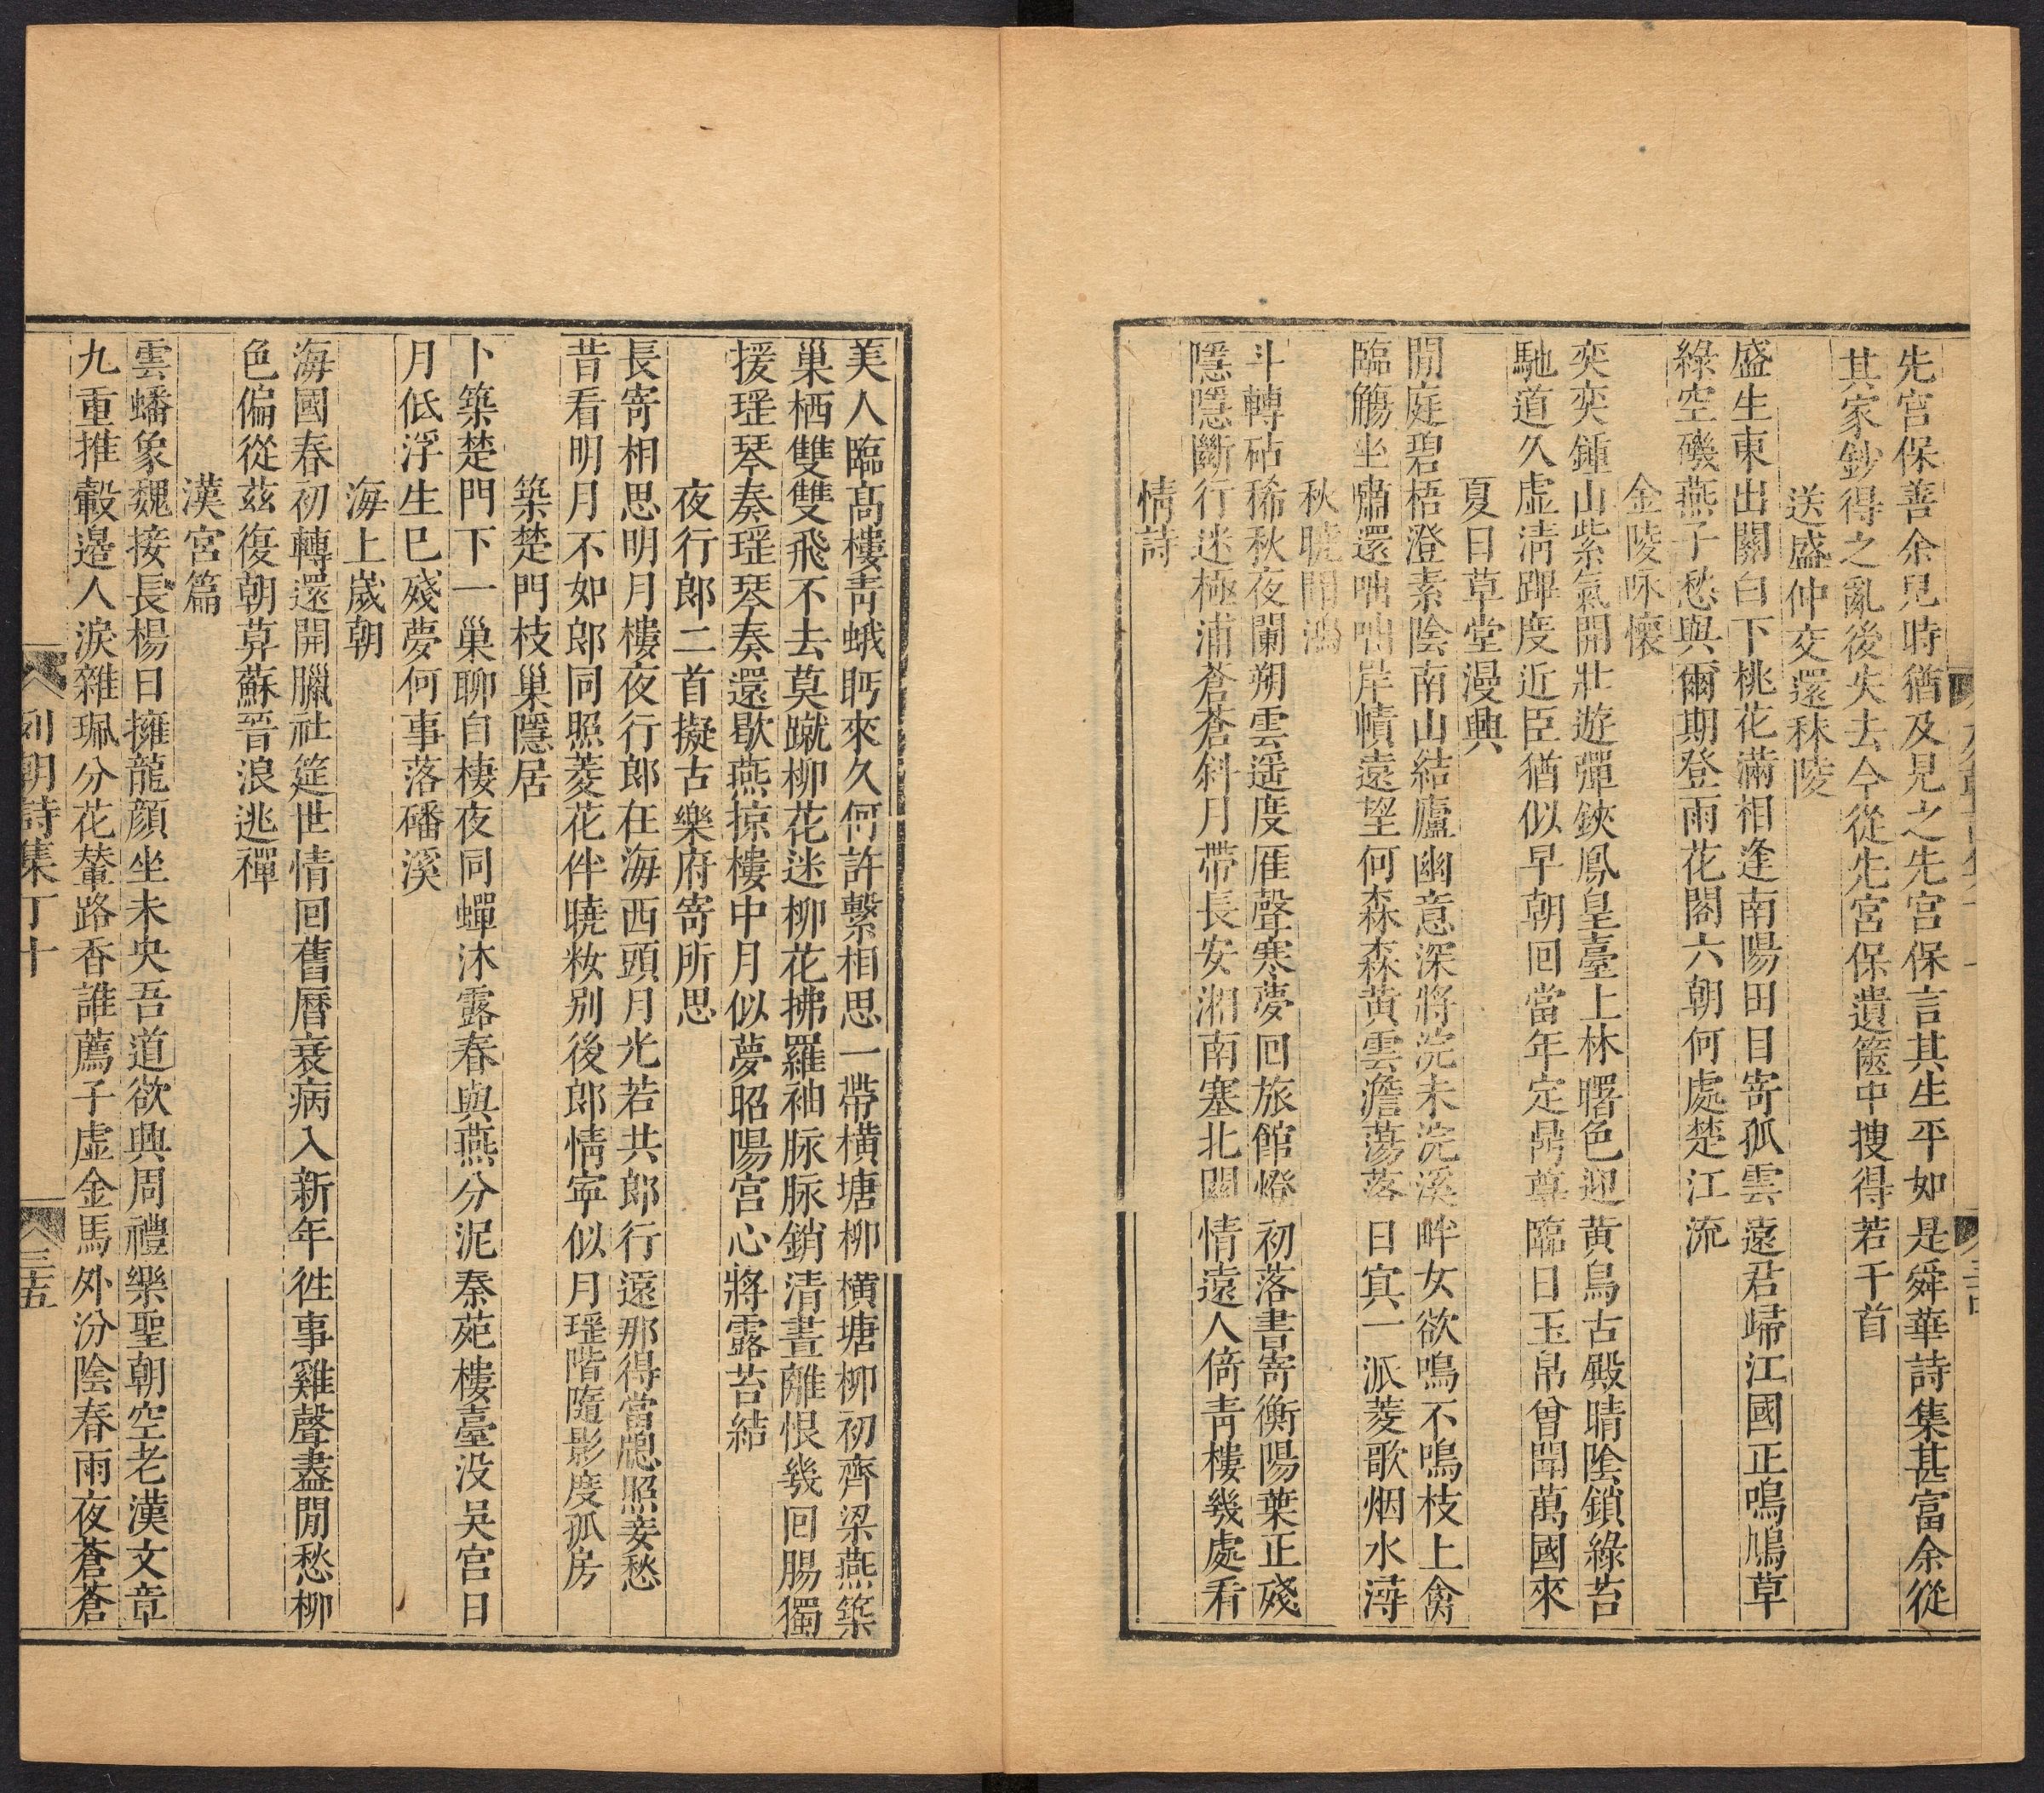 先宮保善余兒時猶及見之先宮保言其生平如是舜華詩集甚富余從
其家鈔得之亂後失去今從先宮保遺篋中搜得若千首
送盛仲交還秣陵
盛生東出關白下桃花滿相逢南陽田目寄孤雲遠君歸江國正鳴鳩草
綠空磯燕子愁與爾期登雨花閣六朝何處楚江流
金陵咏懷
奕奕鍾山紫氣開壯遊彈鋏鳳皇臺上林曙色迎黃鳥古殿晴陰鎖綠苔
馳道久虛淸蹕度近臣猶似早朝回當年定鼎尊臨日玉帛曾聞萬國來
夏日草堂漫興
閒庭碧梧澄素陰南山結廬幽意深將浣未浣溪畔女欲鳴不鳴枝上禽
臨觴坐嘯還咄咄岸幘遠望何森森黃雲澹蕩落日寅一派菱歌烟水潯
秋曉聞鴻
斗轉砧稀秋夜闌朔雲遥度雁聲寒夢回旅館燈初落書寄衡陽葉正殘
隱隱斷行迷極浦蒼蒼斜月帶長安湘南塞北關情遠人倚靑樓幾處看
情詩
美人臨髙樓靑蛾眄來久何許繫相思一帶橫塘柳橫塘柳初齊梁燕築
巢栖雙雙飛不去莫蹴柳花迷柳花拂羅袖脉脉銷清晝離恨幾回腸獨
援瑶琴奏瑶琴奏還歇燕掠樓中月似夢昭陽宮心將露苔結
夜行郎二首擬古樂府寄所思
長寄相思明月樓夜行郎在海西頭月光若共郎行遠那得當牕照妾愁
昔看明月不如郎同照菱花伴曉妝別後郎情寧似月瑶階隨影度孤房
築楚門枝巢隱居
卜築楚門下一巢聊自棲夜同蟬沐露春與燕分泥秦苑樓臺没吳宮日
月低浮生巳殘夢何事落磻溪
海上嵗朝
海國春初轉還開臘社筵世情回舊曆衰病入新年徃事雞聲盡閒愁柳
色偏從茲復朝莫蘇晉浪逃禪
漢宮篇
雲蟠象魏接長楊日擁龍顔坐未央吾道欲興周禮樂聖朝空老漢文章
九重推轂邊人淚雜珮分花輦路香誰薦子虛金馬外汾陰春雨夜蒼蒼
列朝詩集丁十
三五